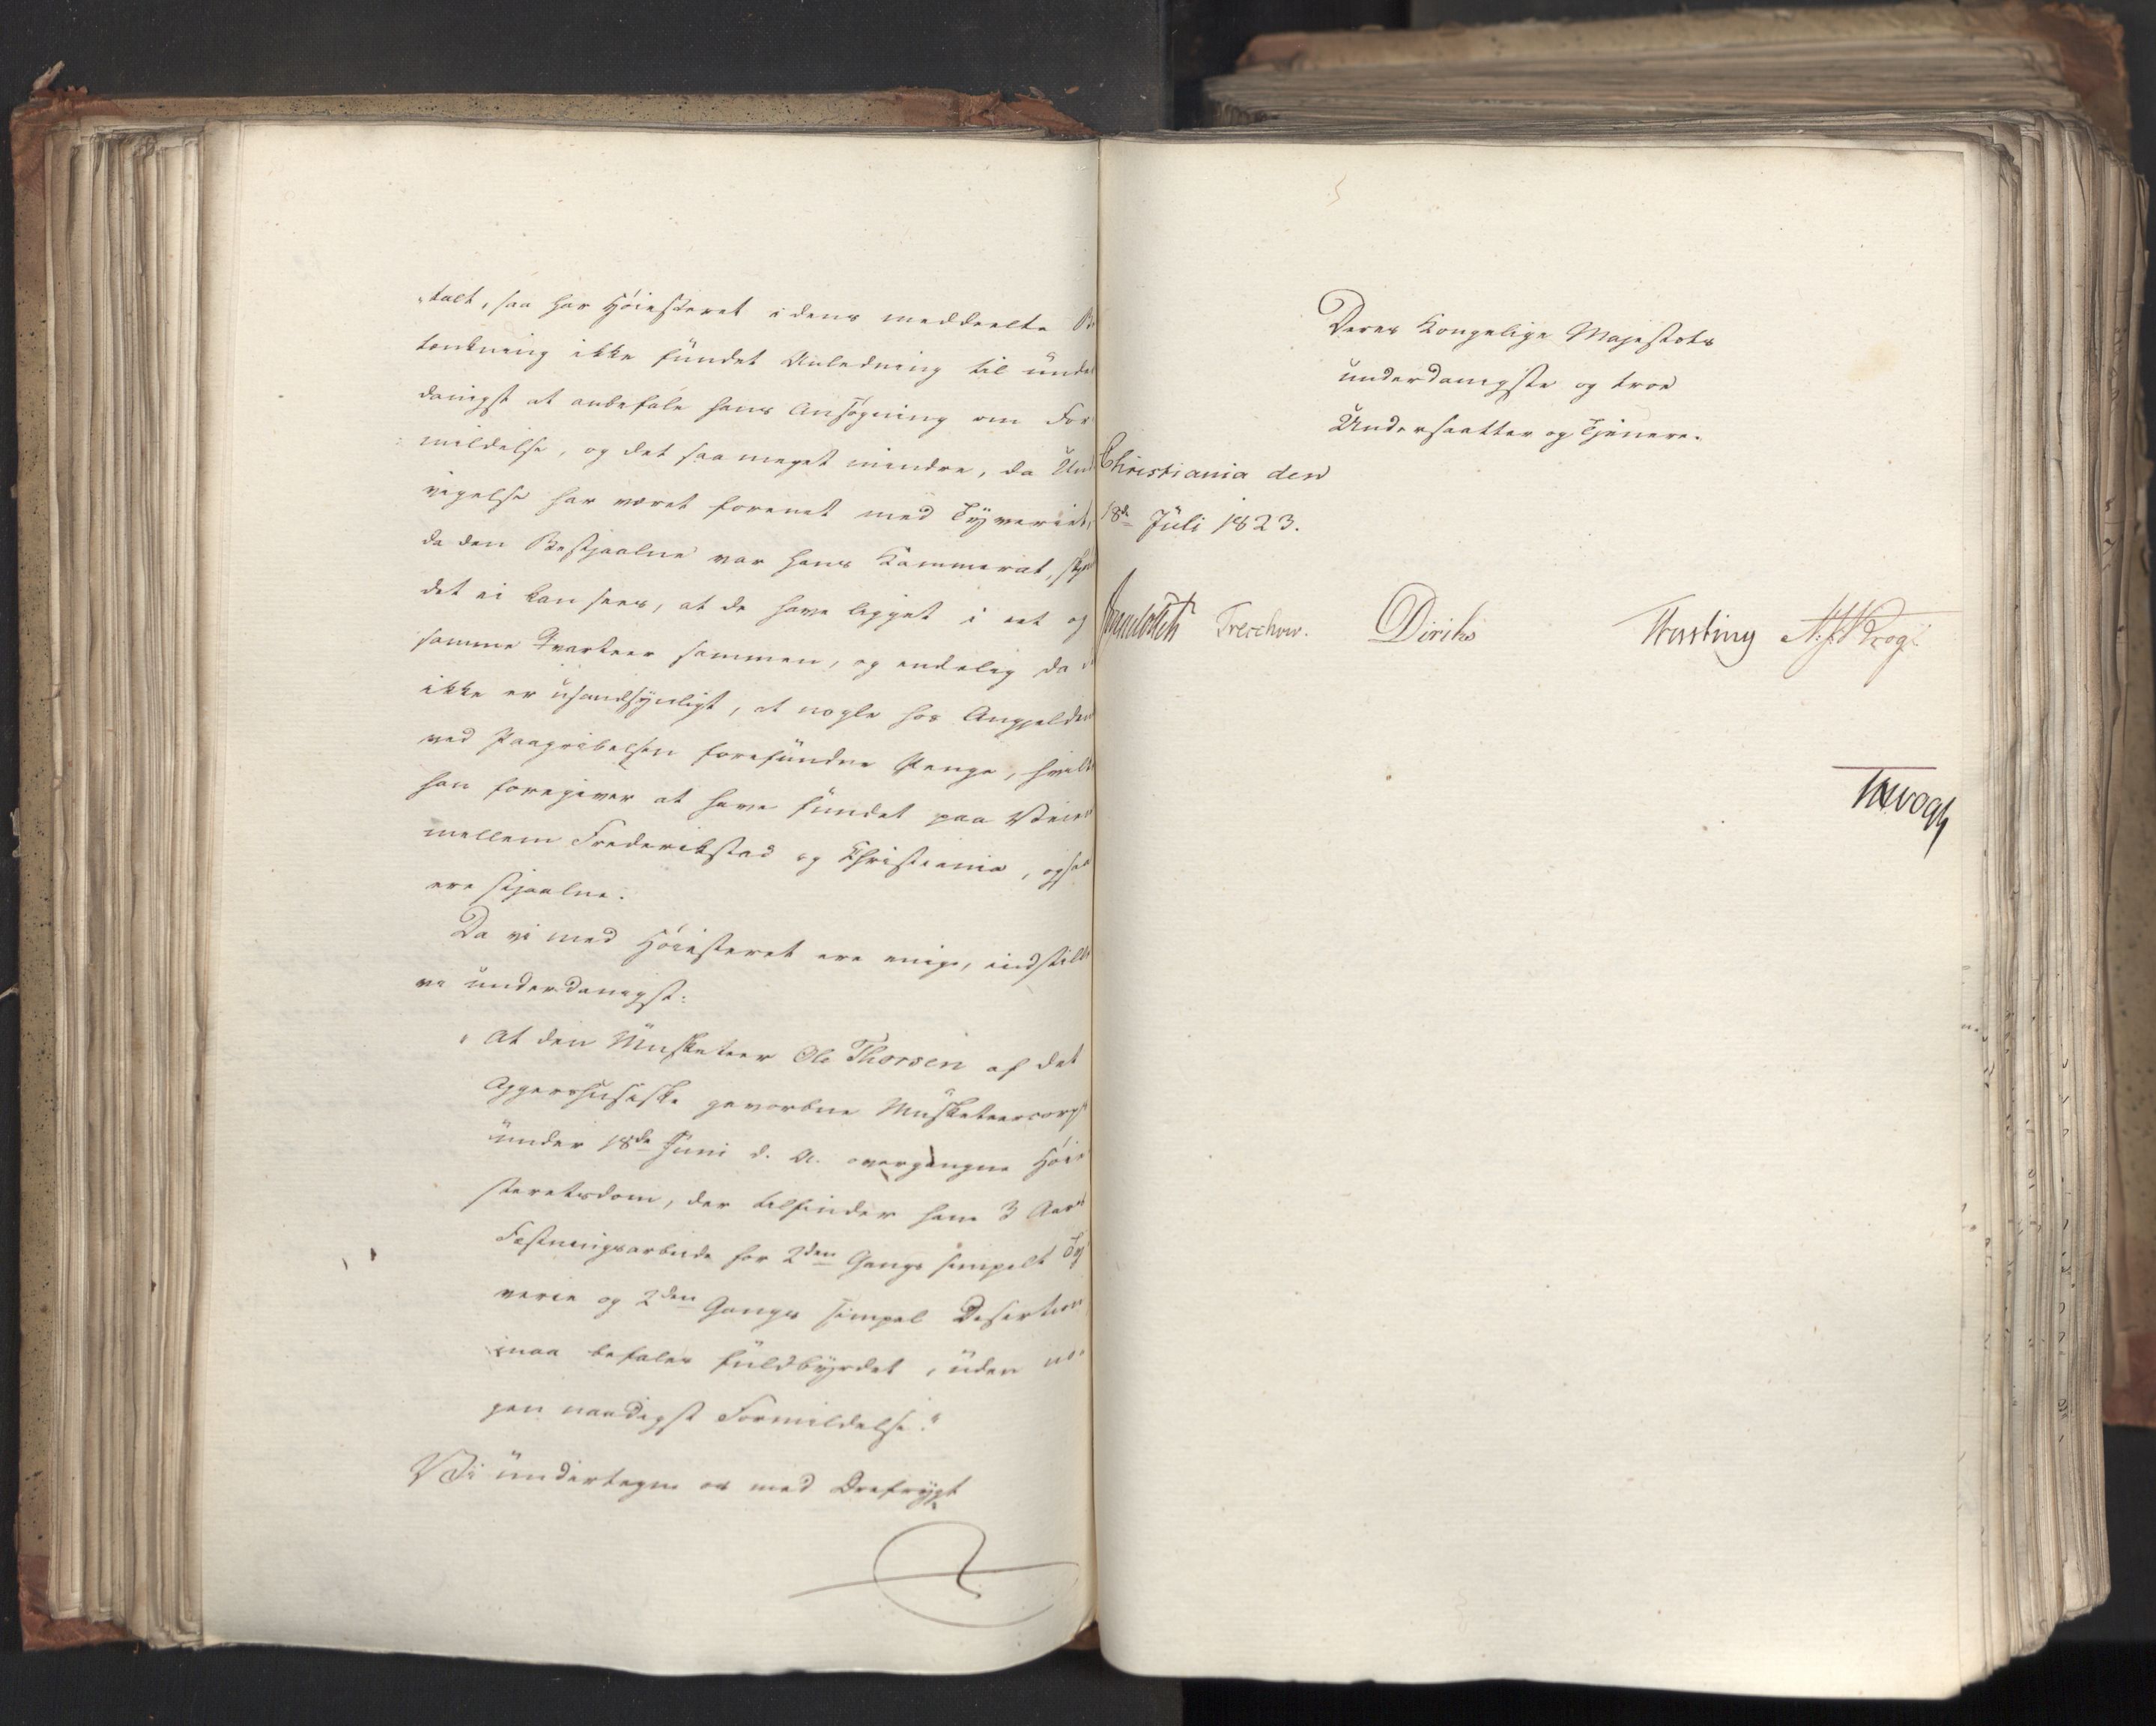 „talt, saa har Høiesteret i dens meddeelte Be
tænkning ikke fundet Anledning til under
danigst at anbefale hans Ansøgning om For
mildelse, og det saameget mindre, da Und
vigelse har været forenet med Tyveriet,
da den Bestjaalne var hans Kammerat,
det ei kan sees, at de have ligget i eet og
samme Qvarteer sammen, og endelig da
ikke er usandsynligt, at nogle hos Angjelden
ved Paagribelsen forefundne Penge, hvilke
han foregiver at have fundet paa Veien
mellem Frederikstad og Christiania, ogsaa
ere stjaalne.
Da vi med Høiesteret ere enige, indstille
vi underdanigst:
„At den Musketeer Ole Thorsen af det
Aggershusiske gevorbne Musketeercorps
under 18de Juni d. A. overgangne Høie
steretsdom, der tilfinder ham 3 Aars
Fæstningsarbeide for 2den Gangs simpelt Ty
verie og 2den Gangs simpel Desertion
maa befales fuldbyrdet, uden no
gen naadigst Formildelse."
Vi undertegne os med Ærefrygt
Deres Kongelige Majestæts
underdanigste og troe
Undersaatter og Tjenere.
Christiania den
18de Juli 1823.
Treschow. Diriks